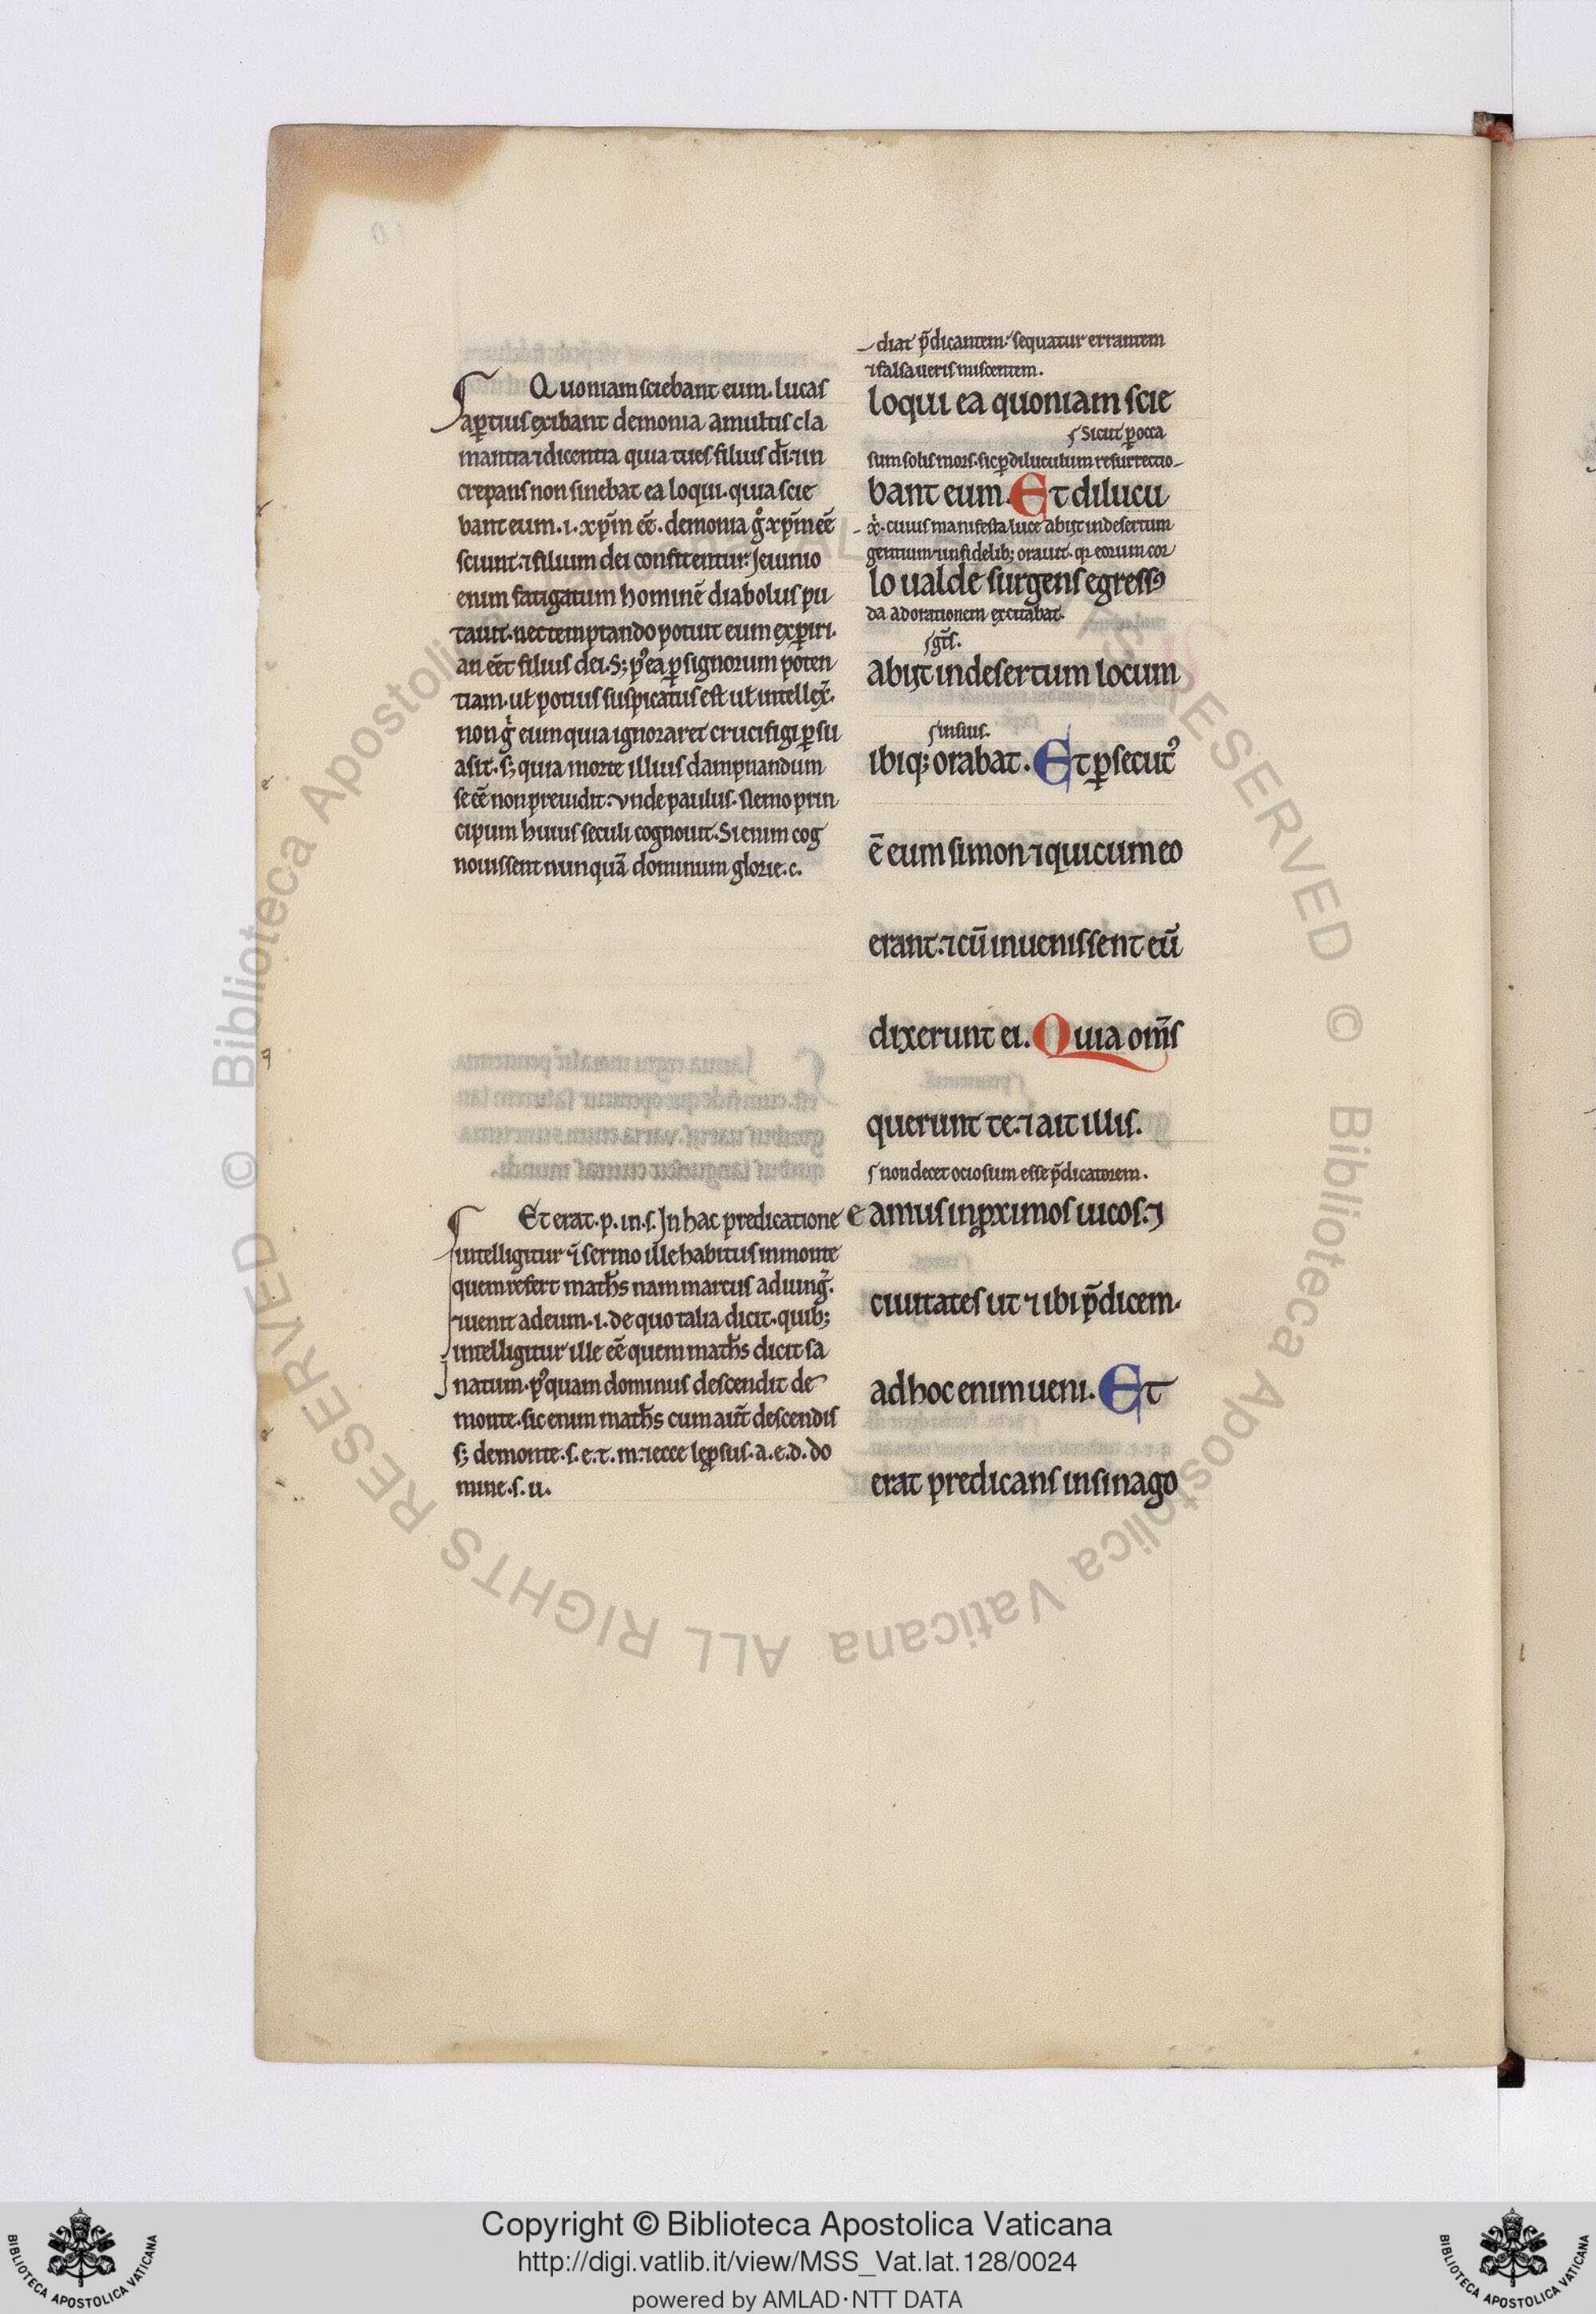 Quoniam sciebant eum. lucas
aꝑtius exibant demonia a multis cla
mantia ⁊ dicentia quia tu es filius dī ⁊ in
crepans non sinebat ea loqui. quia scie
bant eum .i. xp̄m eē. demonia gͦ xp̄m eē
sciunt. ⁊ filium dei confitentur. Jeiunio
enim fatigatum hominē diabolus pu
tauit. nec temptando potuit eum exꝑiri.
an eēt filius dei. S; pꝰea ꝑ signorum poten
tiam. uł potius suspicatus est uł intellex̄.
non gͥ eum quia ignoraret crucifigi ꝑsu
asit. s; quia morte illius dampnandum
se eē non preuidit. vnde paulus. Nemo prin
cipum huius seculi cognouit. Si enim cog
nouissent nunquā dominum glorie. c.
Et erat. p. in. s. In hac predicatione
intelligitur ⁊ sermo ille habitus in monte
quem refert math̄s nam marcus adiunḡ.
⁊ uenit ad eum .i. de quo talia dicit. quib;
intelligitur ille eē quem math̄s dicit sa
natum. pꝰquam dominus descendit de
monte. sic enim math̄s cum aūt descendis
s; de monte. s. e. t. m. ⁊ ecce leꝓsus. a. e. d. do
mine. s. u.
diat p̄dicantem. sequatur errantem
⁊ falsa ueris miscentem.
loqui ea quoniam scie
Sicut ꝑ occa
sum solis mors. sic ꝑ diluculum resurrectio
bant eum. Et dilucu
x̄. cuius manifesta luce abijt in desertum
gentium ⁊ in fidelib; orauit. qr eorum cor
lo ualde surgens egressꝰ
da ad orationem excitabat.
gēs.
abijt in desertum locum
in suis.
ibiq; orabat. Et ꝑsecutꝰ
ē eum simon ⁊ qui cum eo
erant. ⁊ cū inuenissent eū
dixerunt ei. Quia om̄s
querunt te. ⁊ ait illis.
non decet ociosum esse p̄dicatorem.
eamus in ꝓximos uicos. ⁊
ciuitates ut ⁊ ibi p̄dicem.
ad hoc enim ueni. Et
erat predicans in sinago
© Biblioteca Apostolica Vaticana ALL RIGHTS RESERVED
Copyright © Biblioteca Apostolica Vaticana
http://digi.vatlib.it/view/MSS_Vat.lat.128/0024
powered by AMLAD·NTT DATA
BIBLIOTECA APOSTOLICA VATICANA
BIBLIOTECA APOSTOLICA VATICANA